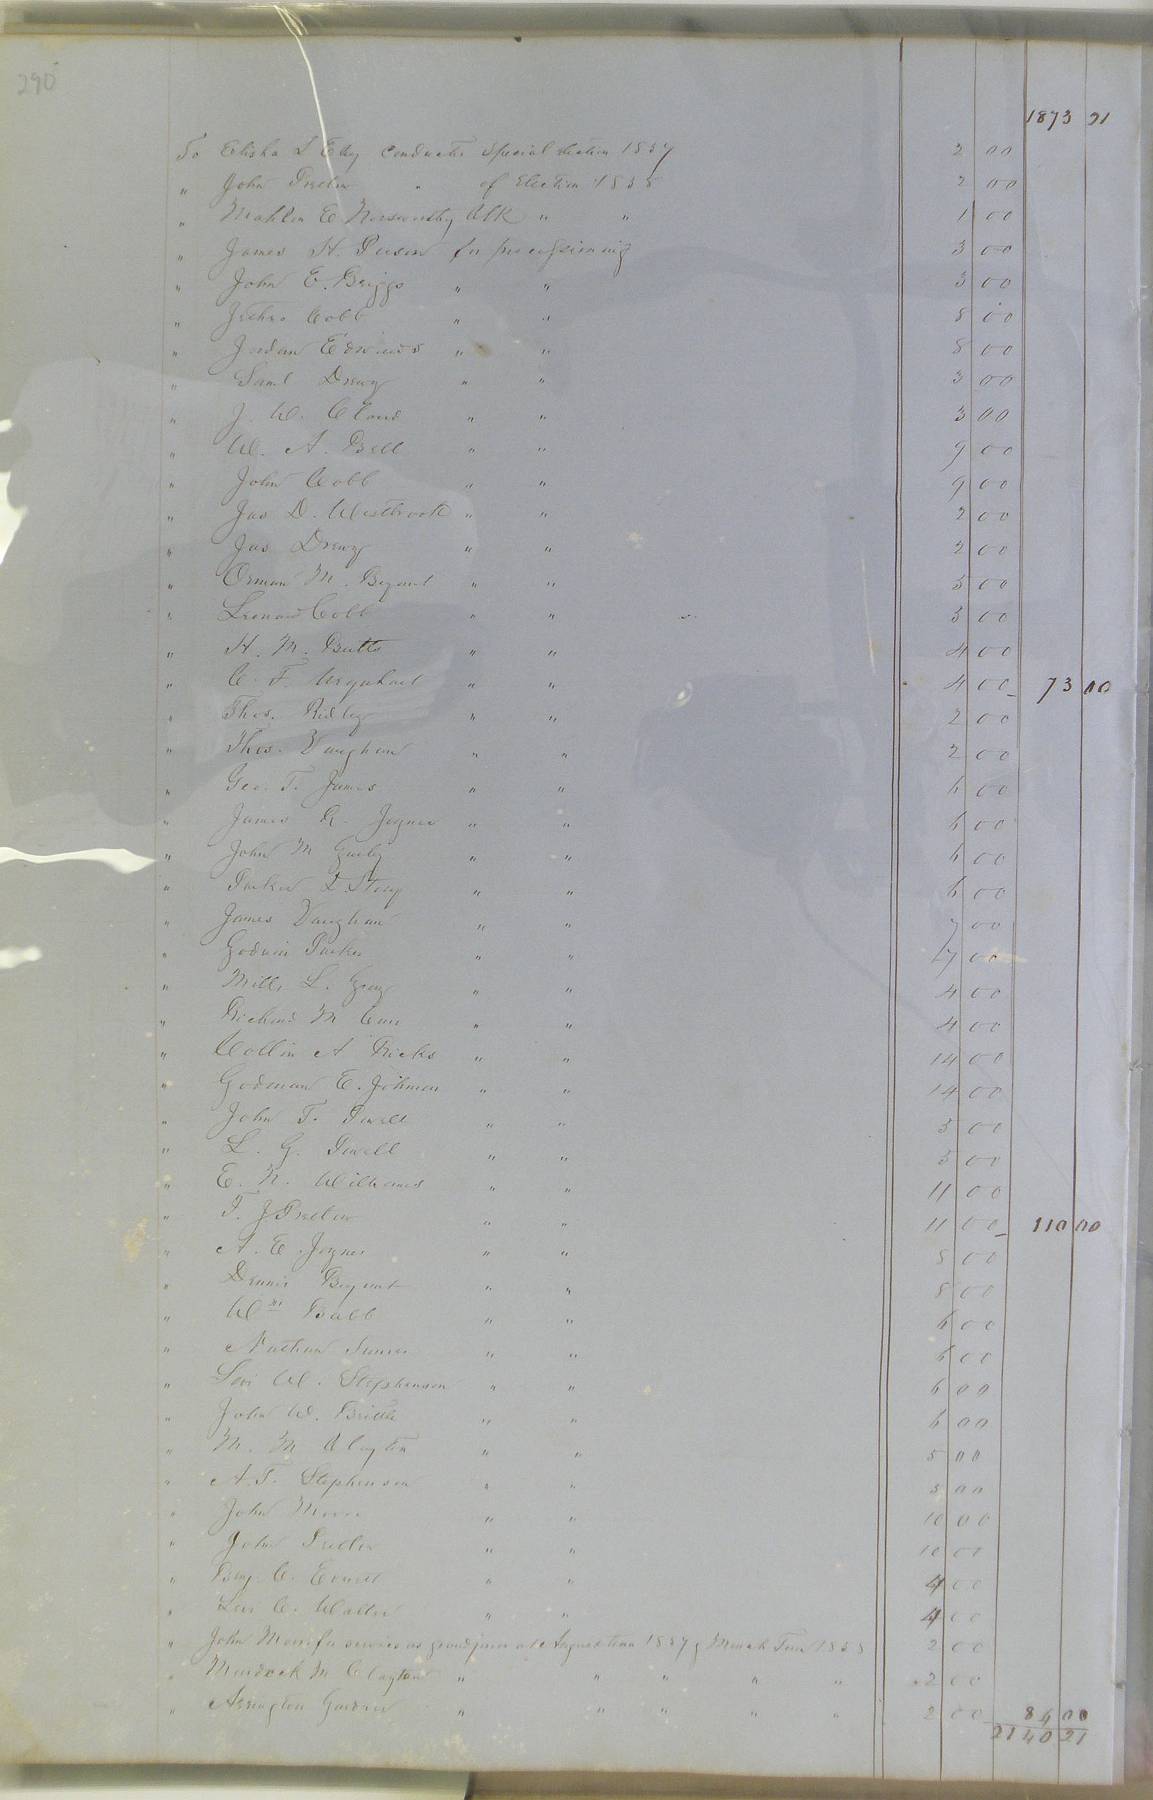 290
1873 21
To Elisha L Eley conductor Special election 1857 2 00
" John Pretlow " of Election 1858 2 00
" Mahlon E Norsworthy Clk " " 1 00
" James H. Person for processioning 3 00
" John E. Briggs " " 3 00
" Jethro Cobb " " 8 00
" Jordan Edwards " " 8 00
" Saml Drewry " " 3 00
" J. W. Claud " " 3 00
" W. A. Bell " " 9 00
" John Cobb " " 9 00
" Jas D. Westbrook " " 2 00
" Jas Drewry " " 2 00
" Orman M. Bryant " " 5 00
" Leonard Cobb " " 5 00
" H. M. Butts " " 4 00
" C. F. Urquhart " " 4 00 73 00
" Thos. Ridley " " 2 00
" Thos. Vaughan " " 2 00
" Geo. T. James " " 6 00
" James G. Joyner " " 6 00
" John M Gurley " " 6 00
" Parker D. Story " " 6 00
" James Vaughan " " 7 00
" Godwin Parker " " 7 00
" Mills L. Gray " " 4 00
" Richard M " " 4 00
" Collin A Ricks " " 14 00
" Godman E. Johnson " " 14 00
" John T. Powell " " 5 00
" L. G. Powell " " 5 00
" E. N. Williams " " 11 00
" T. J Pretlow " " 11 00 110 00
" A. E. Joyner " " 8 00
" Dennis Bryant " " 8 00
" Wm Babb " " 6 00
" Nathan Turner " " 6 00
" Levi W. Stephenson " " 6 00
" John W. Brittle " " 6 00
" M. M Clayton " " 5 00
" A. T. Stephenson " " 5 00
" John " " 10 00
" John Pretlow " " 10 00
" Benj. C. " " 4 00
" Levi C. Waller " " 4 00
" John for services as grandjuror at August term 1857 & March Term 1858 2 00
" Murdock M Clayton " " " " " 2 00
" Arrington Gardner " " " " " 2 00 84 00
2140 21